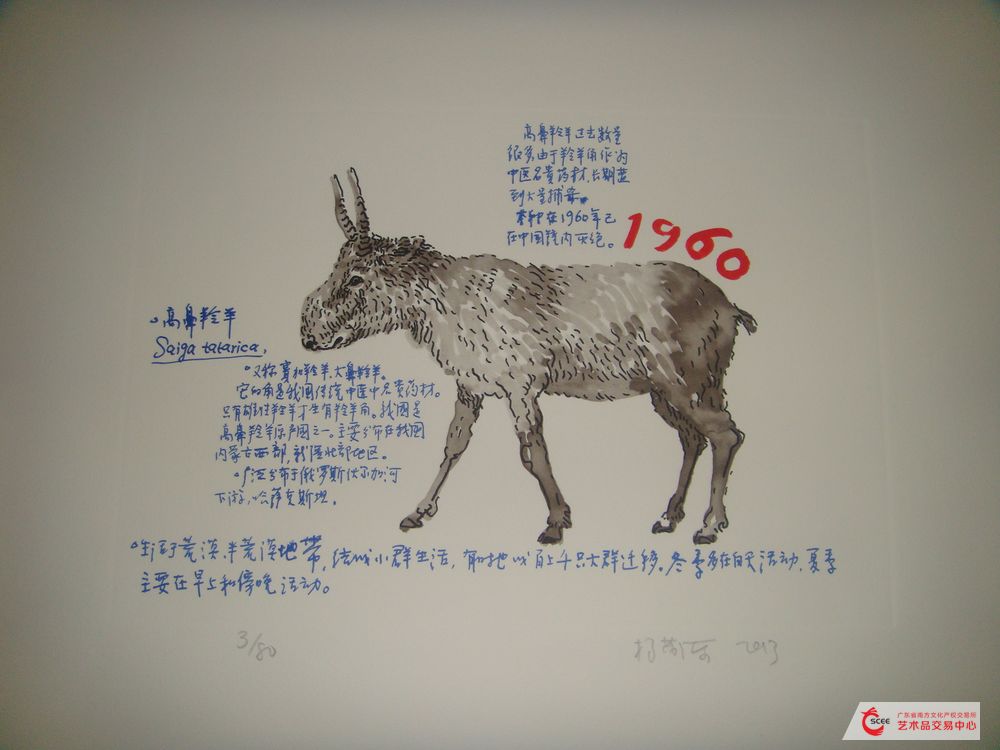 高鼻羚羊过去数量
很多,由于羚羊角作为
中医名贵药材,长期遭
到大量捕杀。
野种在1960年已
在中国境内灭绝。
1960
高鼻羚羊
Saiga tatarica,
又称赛加羚羊、大鼻羚羊。
它的角是我國传统中医中名贵药材。
只有雄性羚羊才生有羚羊角。我國是
高鼻羚羊原产國之一。主要分布在我國
内蒙古西部,新疆北部地区。
广泛分布于俄罗斯伏尔加河
下游,哈萨克斯坦。
生活于荒漠、半荒漠地带,结成小群生活,有时也成百上千只大群迁移。冬季多在白天活动、夏季
主要在早上和傍晚活动。
3/80
2013
SCEE
广东省南方文化产权交易所
艺术品交易中心